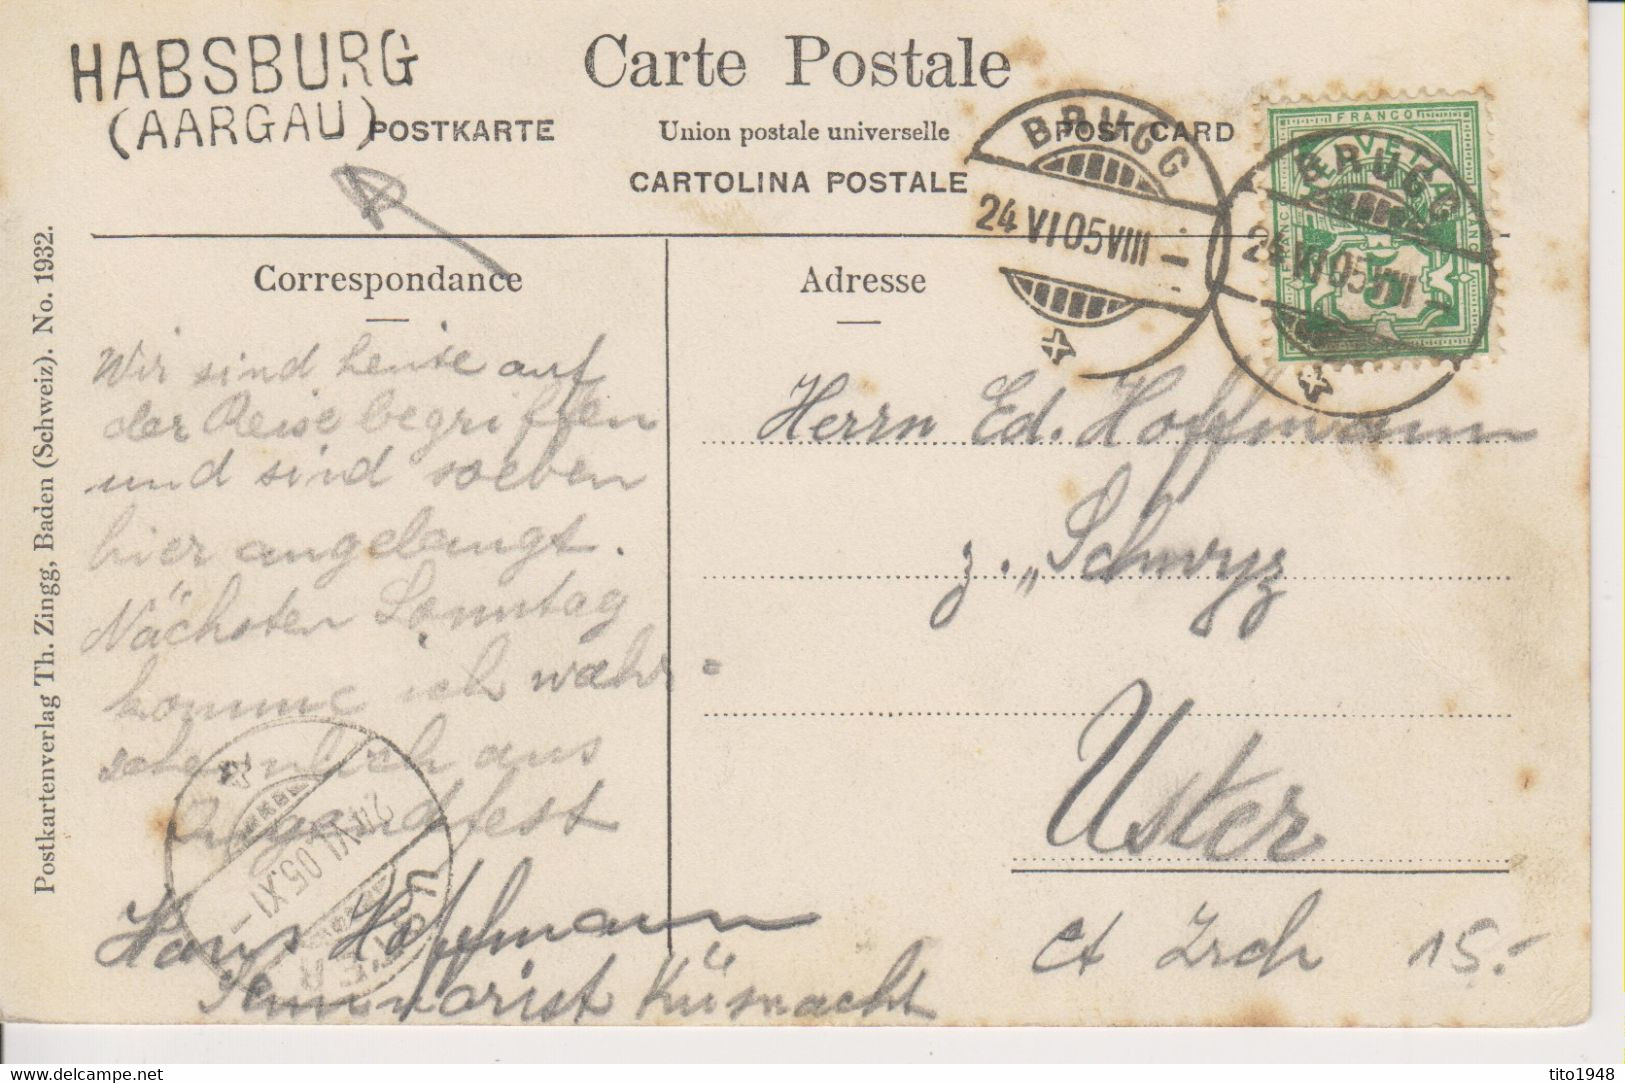 HABSBURG
(AARGAU)
Carte Postale
POSTKARTE
Union postale universelle
POST CARD
CARTOLINA POSTALE
BRUGG
24 VI 05 VIII –
BRUGG
24 VI 05 VIII –
FRANCO
HELVETIA
5
Correspondance
Wir sind heute auf
der Reise begriffen
und sind soeben
hier angelangt.
Nächsten Sonntag
komme ich wahr=
scheinlich ans
Jugendfest
Hans Hoffmann
Seminarist Küsnacht
USTER
24 VI 05. XI –
Adresse
Herrn Ed. Hoffmann
z. „Schwyz
Uster
Ct Zrch
15.-
Postkartenverlag Th. Zingg, Baden (Schweiz). No. 1932.
tito1948